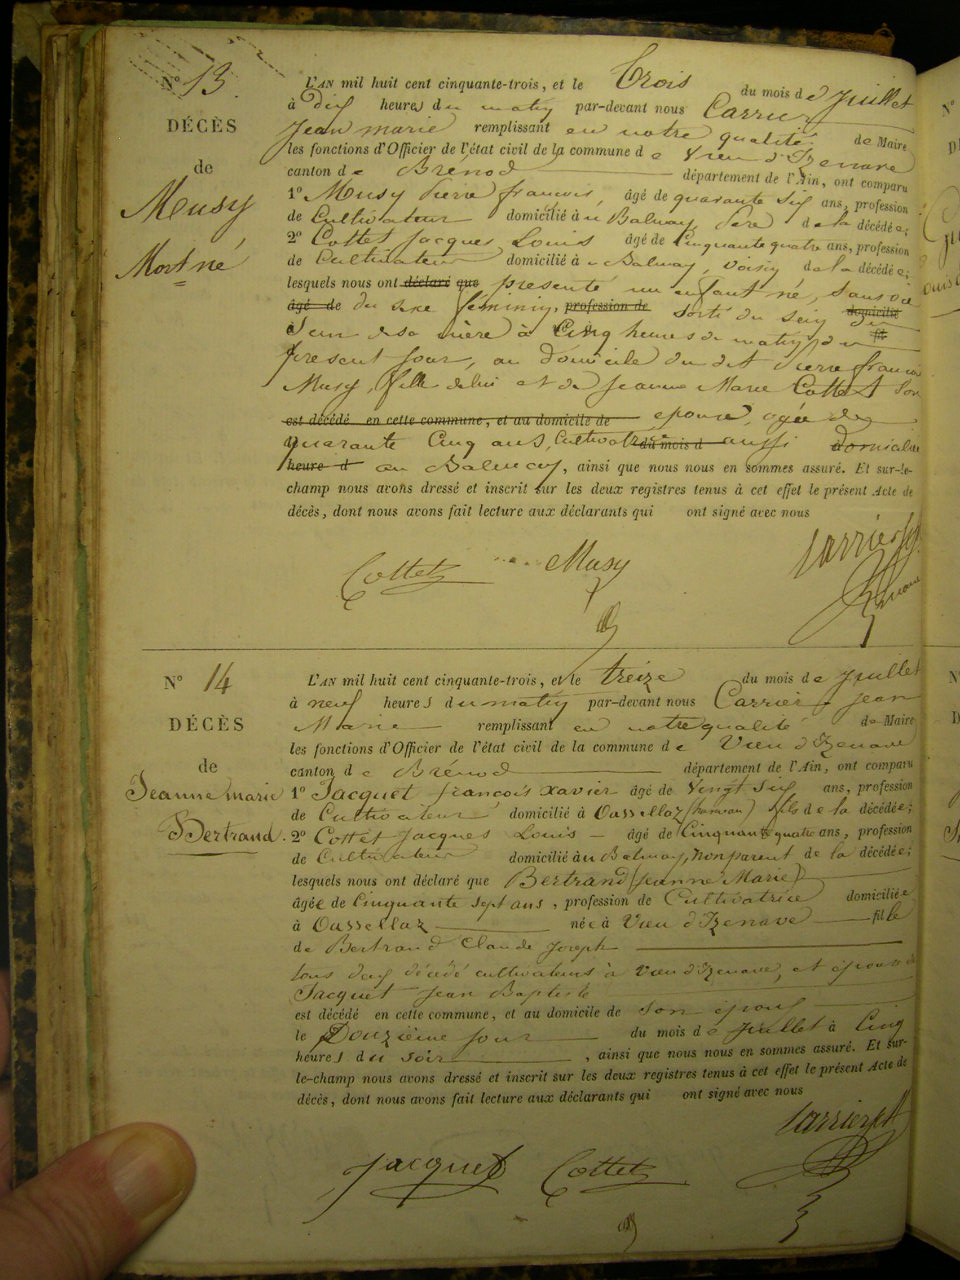 N° 13.
DÉCÈS
de
Musy
Mort né
L'AN mil huit cent cinquante-trois, et le Trois du mois de Juillet
à dix heures du matin par-devant nous Carrier
Jean marie remplissant en notre qualité de Maire
les fonctions d'Officier de l'état civil de la commune de Vieu d'Izenave
canton de Brenod département de l'Ain, ont comparu
1° Musy Pierre françois, âgé de quarante six ans, profession
de Cultivateur domicilié à u Balmay, Père de la décédée;
2° Cottet Jacques Louis âgé de Cinquante quatre ans, profession
de Cultivateur domicilié à u Balmay, voisin de la décédée;
lesquels nous ont déclaré que présenté un enfant né, sans vie
âgé de du sexe féminin, profession de sorti du sein domicilié
de sa mère à Cinq heures du matin du fil
présent jour, au domicile du dit Pierre françois
Musy, fille de lui et de Jeanne Marie Cottet son
est décédé en cette commune, et au domicile de épouse, agée de
quarante Cinq ans, Cultivatrice du mois d aussi domiciliée
heure d au Balmay, ainsi que nous nous en sommes assuré. Et sur-le-
champ nous avons dressé et inscrit sur les deux registres tenus à cet effet le présent Acte de
décès, dont nous avons fait lecture aux déclarants qui ont signé avec nous
Cottet Musy Carrier
N° 14
DÉCÈS
de
Jeanne marie
Bertrand.
L'AN mil huit cent cinquante-trois, et le treize du mois de Juillet
à neuf heures du matin par-devant nous Carrier Jean
Marie remplissant en notre qualité de Maire
les fonctions d'Officier de l'état civil de la commune de Vieu d'Izenave
canton de Brénod département de l'Ain, ont comparu
1° Jacquet françois xavier âgé de Vingt six ans, profession
de Cultivateur domicilié à Oassellaz (hameau) fils de la décédée;
2° Cottet Jacques Louis âgé de Cinquante quatre ans, profession
de Cultivateur domicilié à u Balmay, non parent de la décédée;
lesquels nous ont déclaré que Bertrand (Jeanne Marie)
âgée de Cinquante sept ans, profession de Cultivatrice domiciliée
à Oassellaz née à Vieu d'Izenave fille
de Bertrand Claude Joseph
tous deux décédé cultivateurs à Vieu d'Izenave, et épouse de
Jacquet Jean Baptiste
est décédé en cette commune, et au domicile de son époux
le Douzième jour du mois de Juillet à Cinq
heures du soir, ainsi que nous nous en sommes assuré. Et sur-
le-champ nous avons dressé et inscrit sur les deux registres tenus à cet effet le présent Acte de
décès, dont nous avons fait lecture aux déclarants qui ont signé avec nous
Carrier
Jacquet Cottet